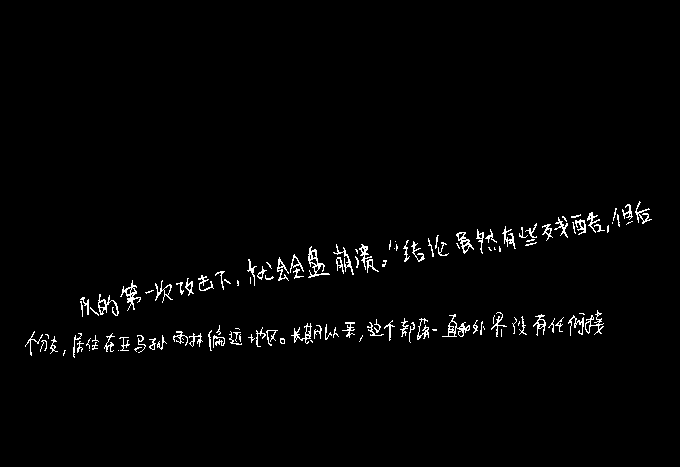 队的第一次攻击下，就会全盘崩溃。“结论虽然有些残酷，但后
个分支，居住在亚马孙雨林偏远地区。长期以来，这个部落一直和外界没有任何接